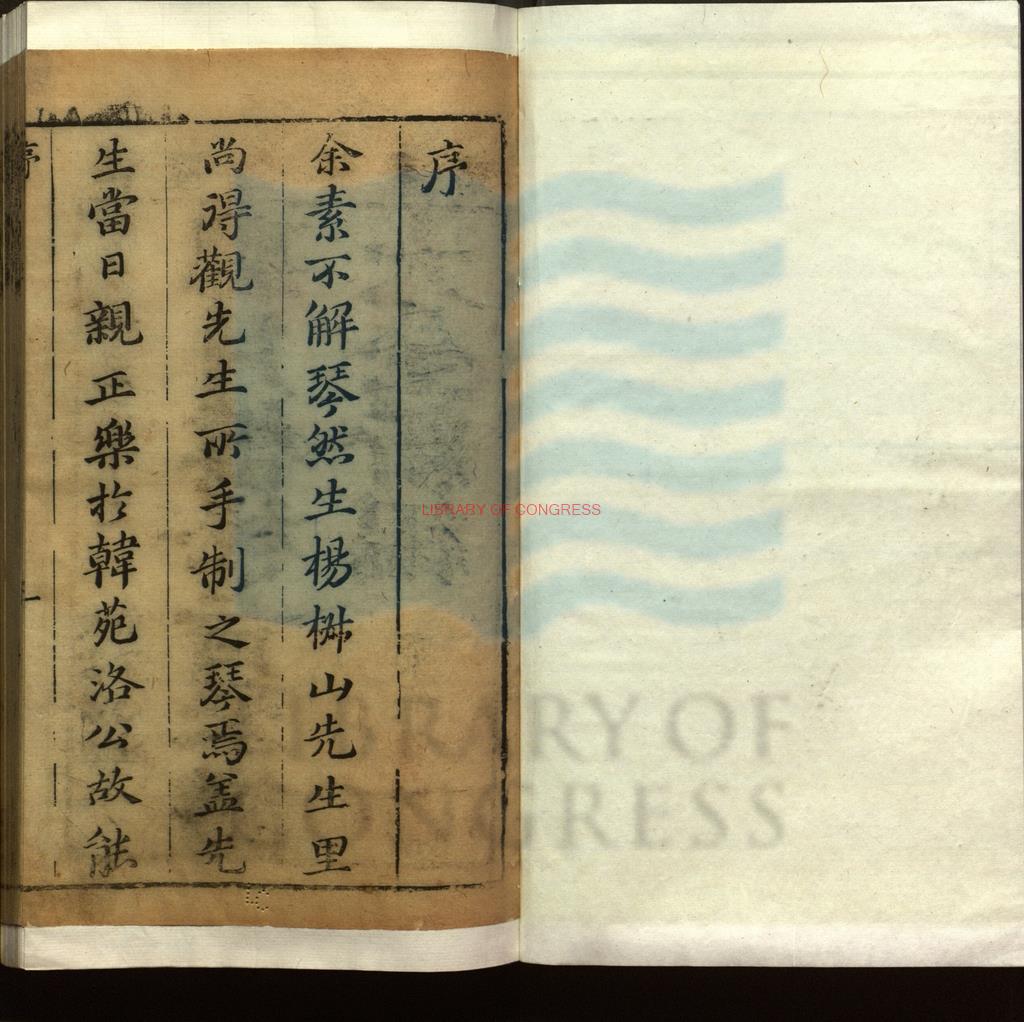 序
余素不解琴然生楊椒山先生里
尚得觀先生所手制之琴焉盖先
生當日親正樂於韓苑洛公故能
序
一
LIBRARY OF CONGRESS
LIBRARY OF
CONGRESS